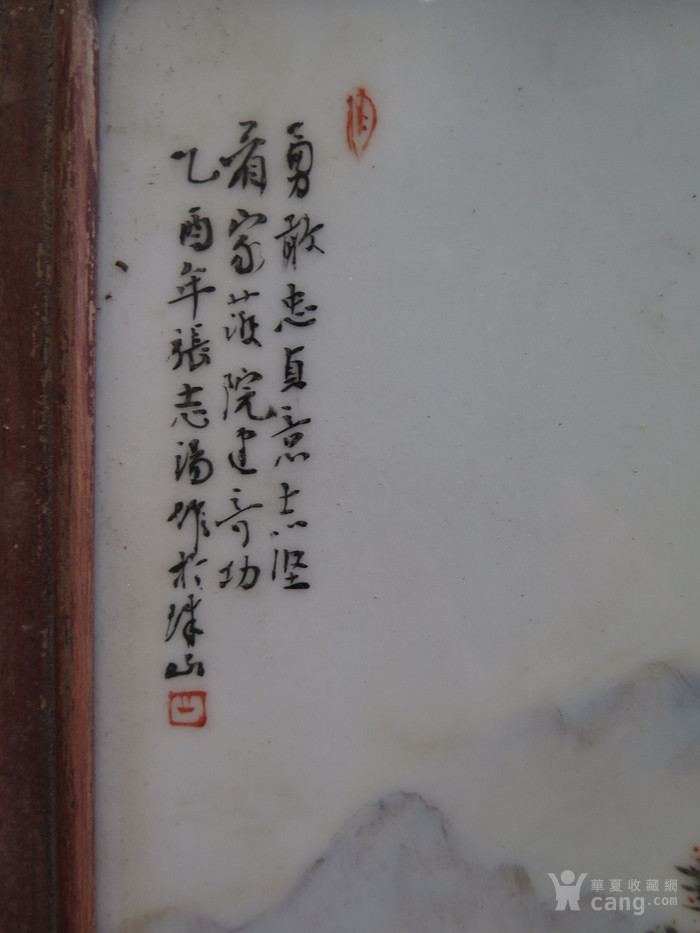 勇敢忠貞意志坚
看家護院建奇功
乙酉年張志湯作於珠山
華夏收藏網
cang.com